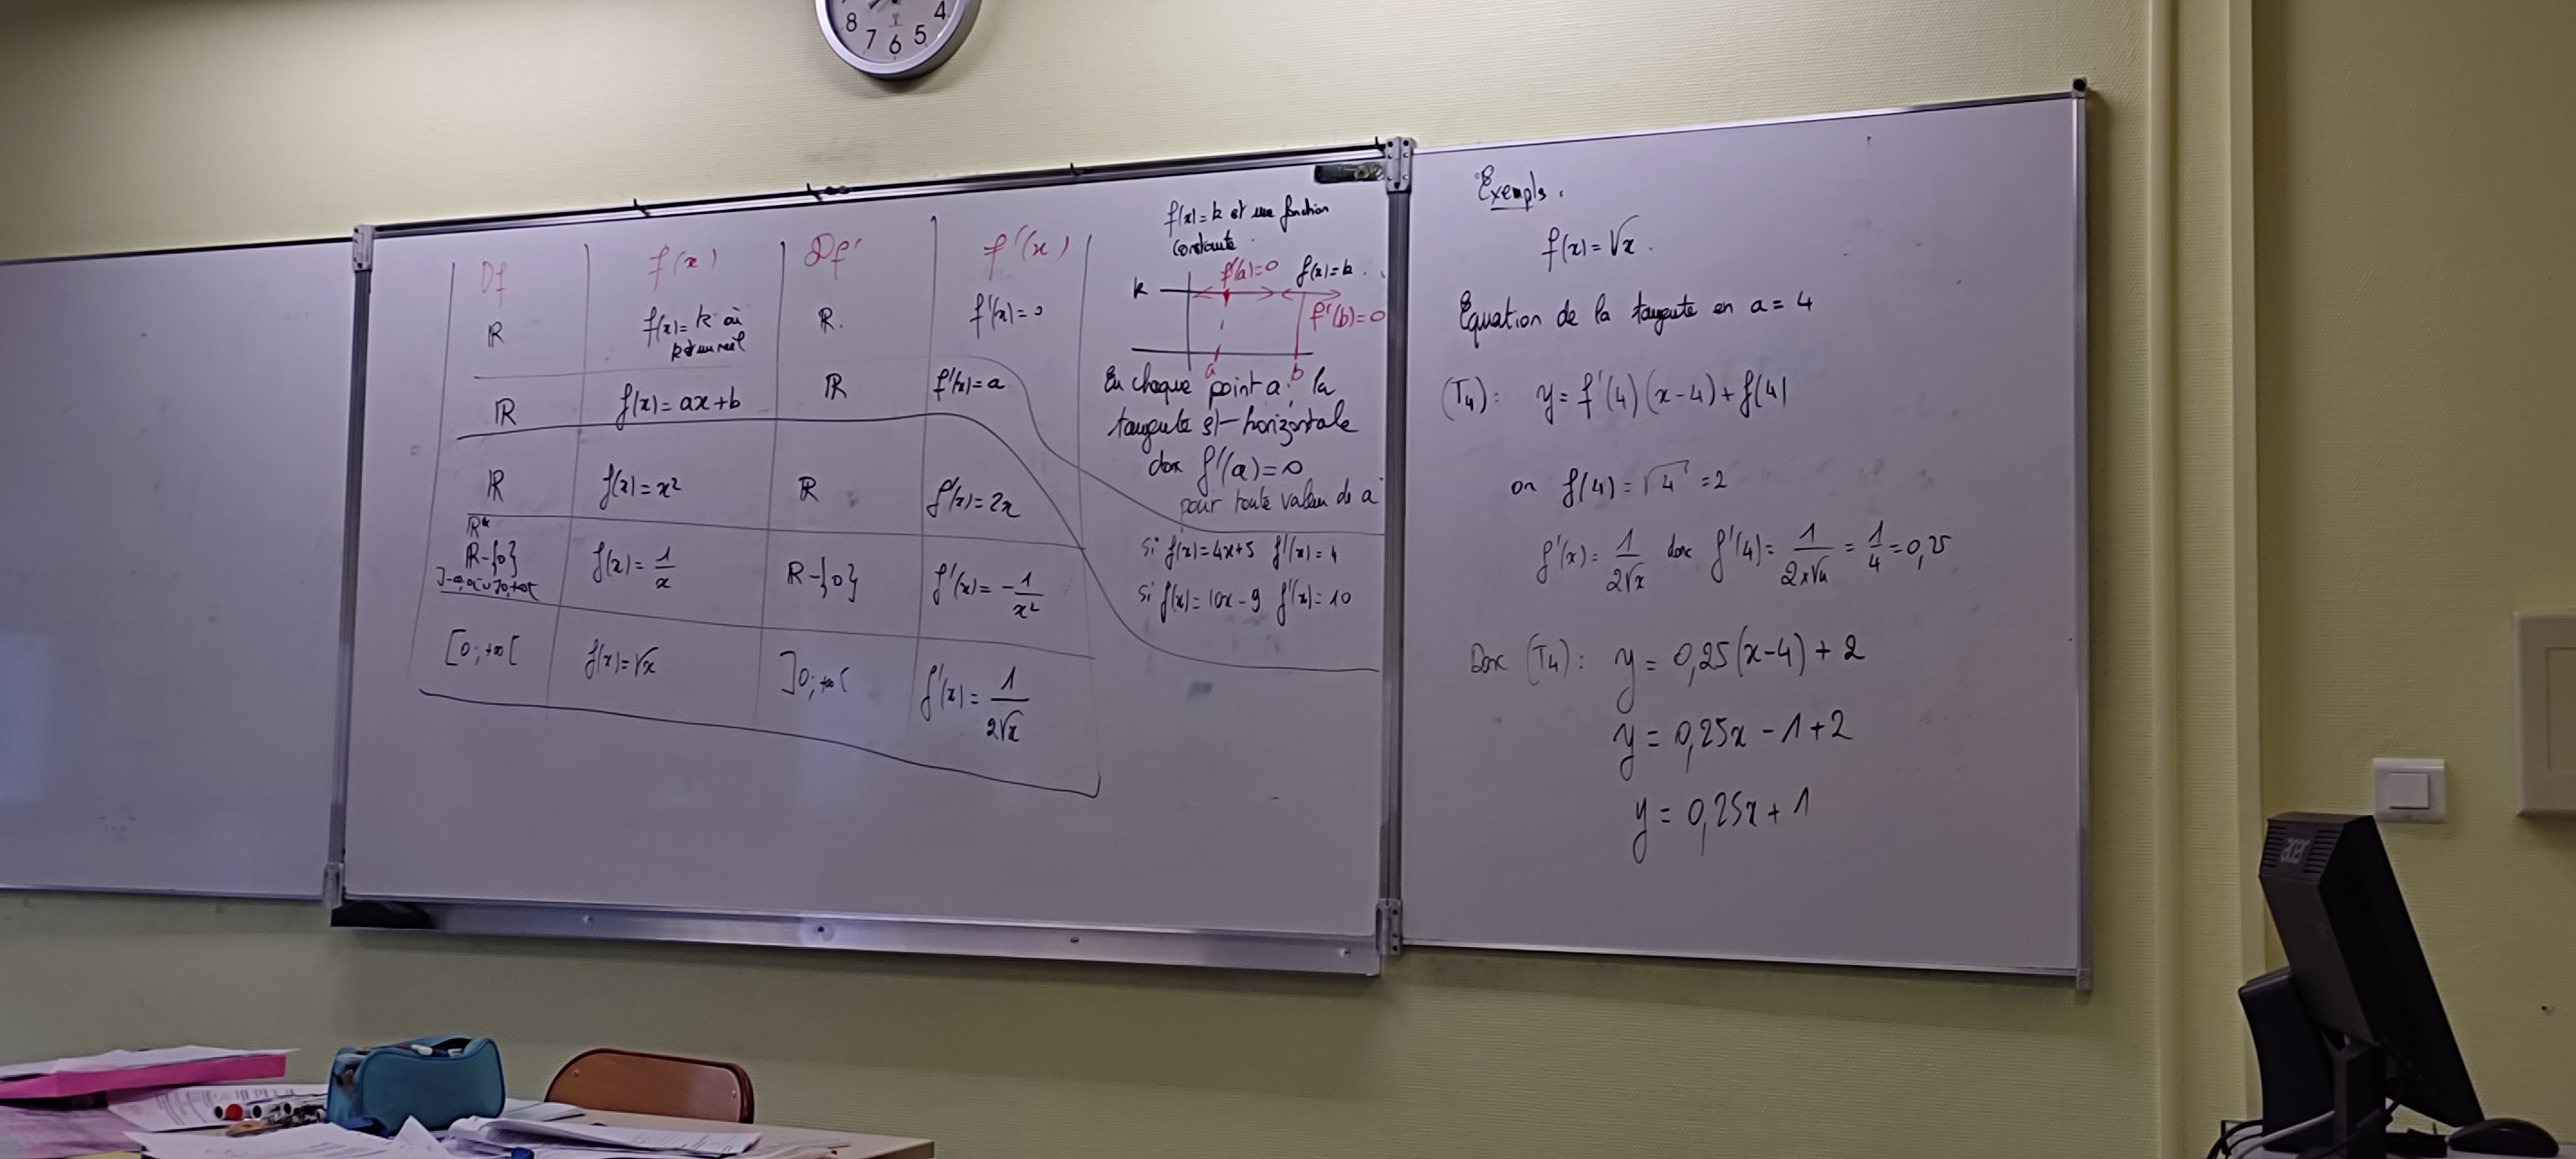 8 7 6 5 4
Df f(x) Df' f'(x)
R f(x)=k où R. f'(x)=0
k est un réel
R f(x)=ax+b R f'(x)=a
R f(x)=x² R f'(x)=2x
R*
R-{0} f(x)=1/x R-{0} f'(x)=-1/x²
]-∞,0[∪]0,+∞[
[0;+∞[ f(x)=√x ]0;+∞[ f'(x)=1/(2√x)
f(x)=k est une fonction
constante.
f'(a)=0 f(x)=k.
k
f'(b)=0
a b
En chaque point a, la
tangente est horizontale
donc f'(a)=0
pour toute valeur de a
si f(x)=4x+5 f'(x)=4
si f(x)=10x-9 f'(x)=10
Exemple.
f(x)=√x.
Equation de la tangente en a=4
(T4): y=f'(4)(x-4)+f(4)
or f(4)=√4=2
f'(x)=1/(2√x) donc f'(4)=1/(2×√4)=1/4=0,25
Donc (T4): y=0,25(x-4)+2
y=0,25x-1+2
y=0,25x+1
acer